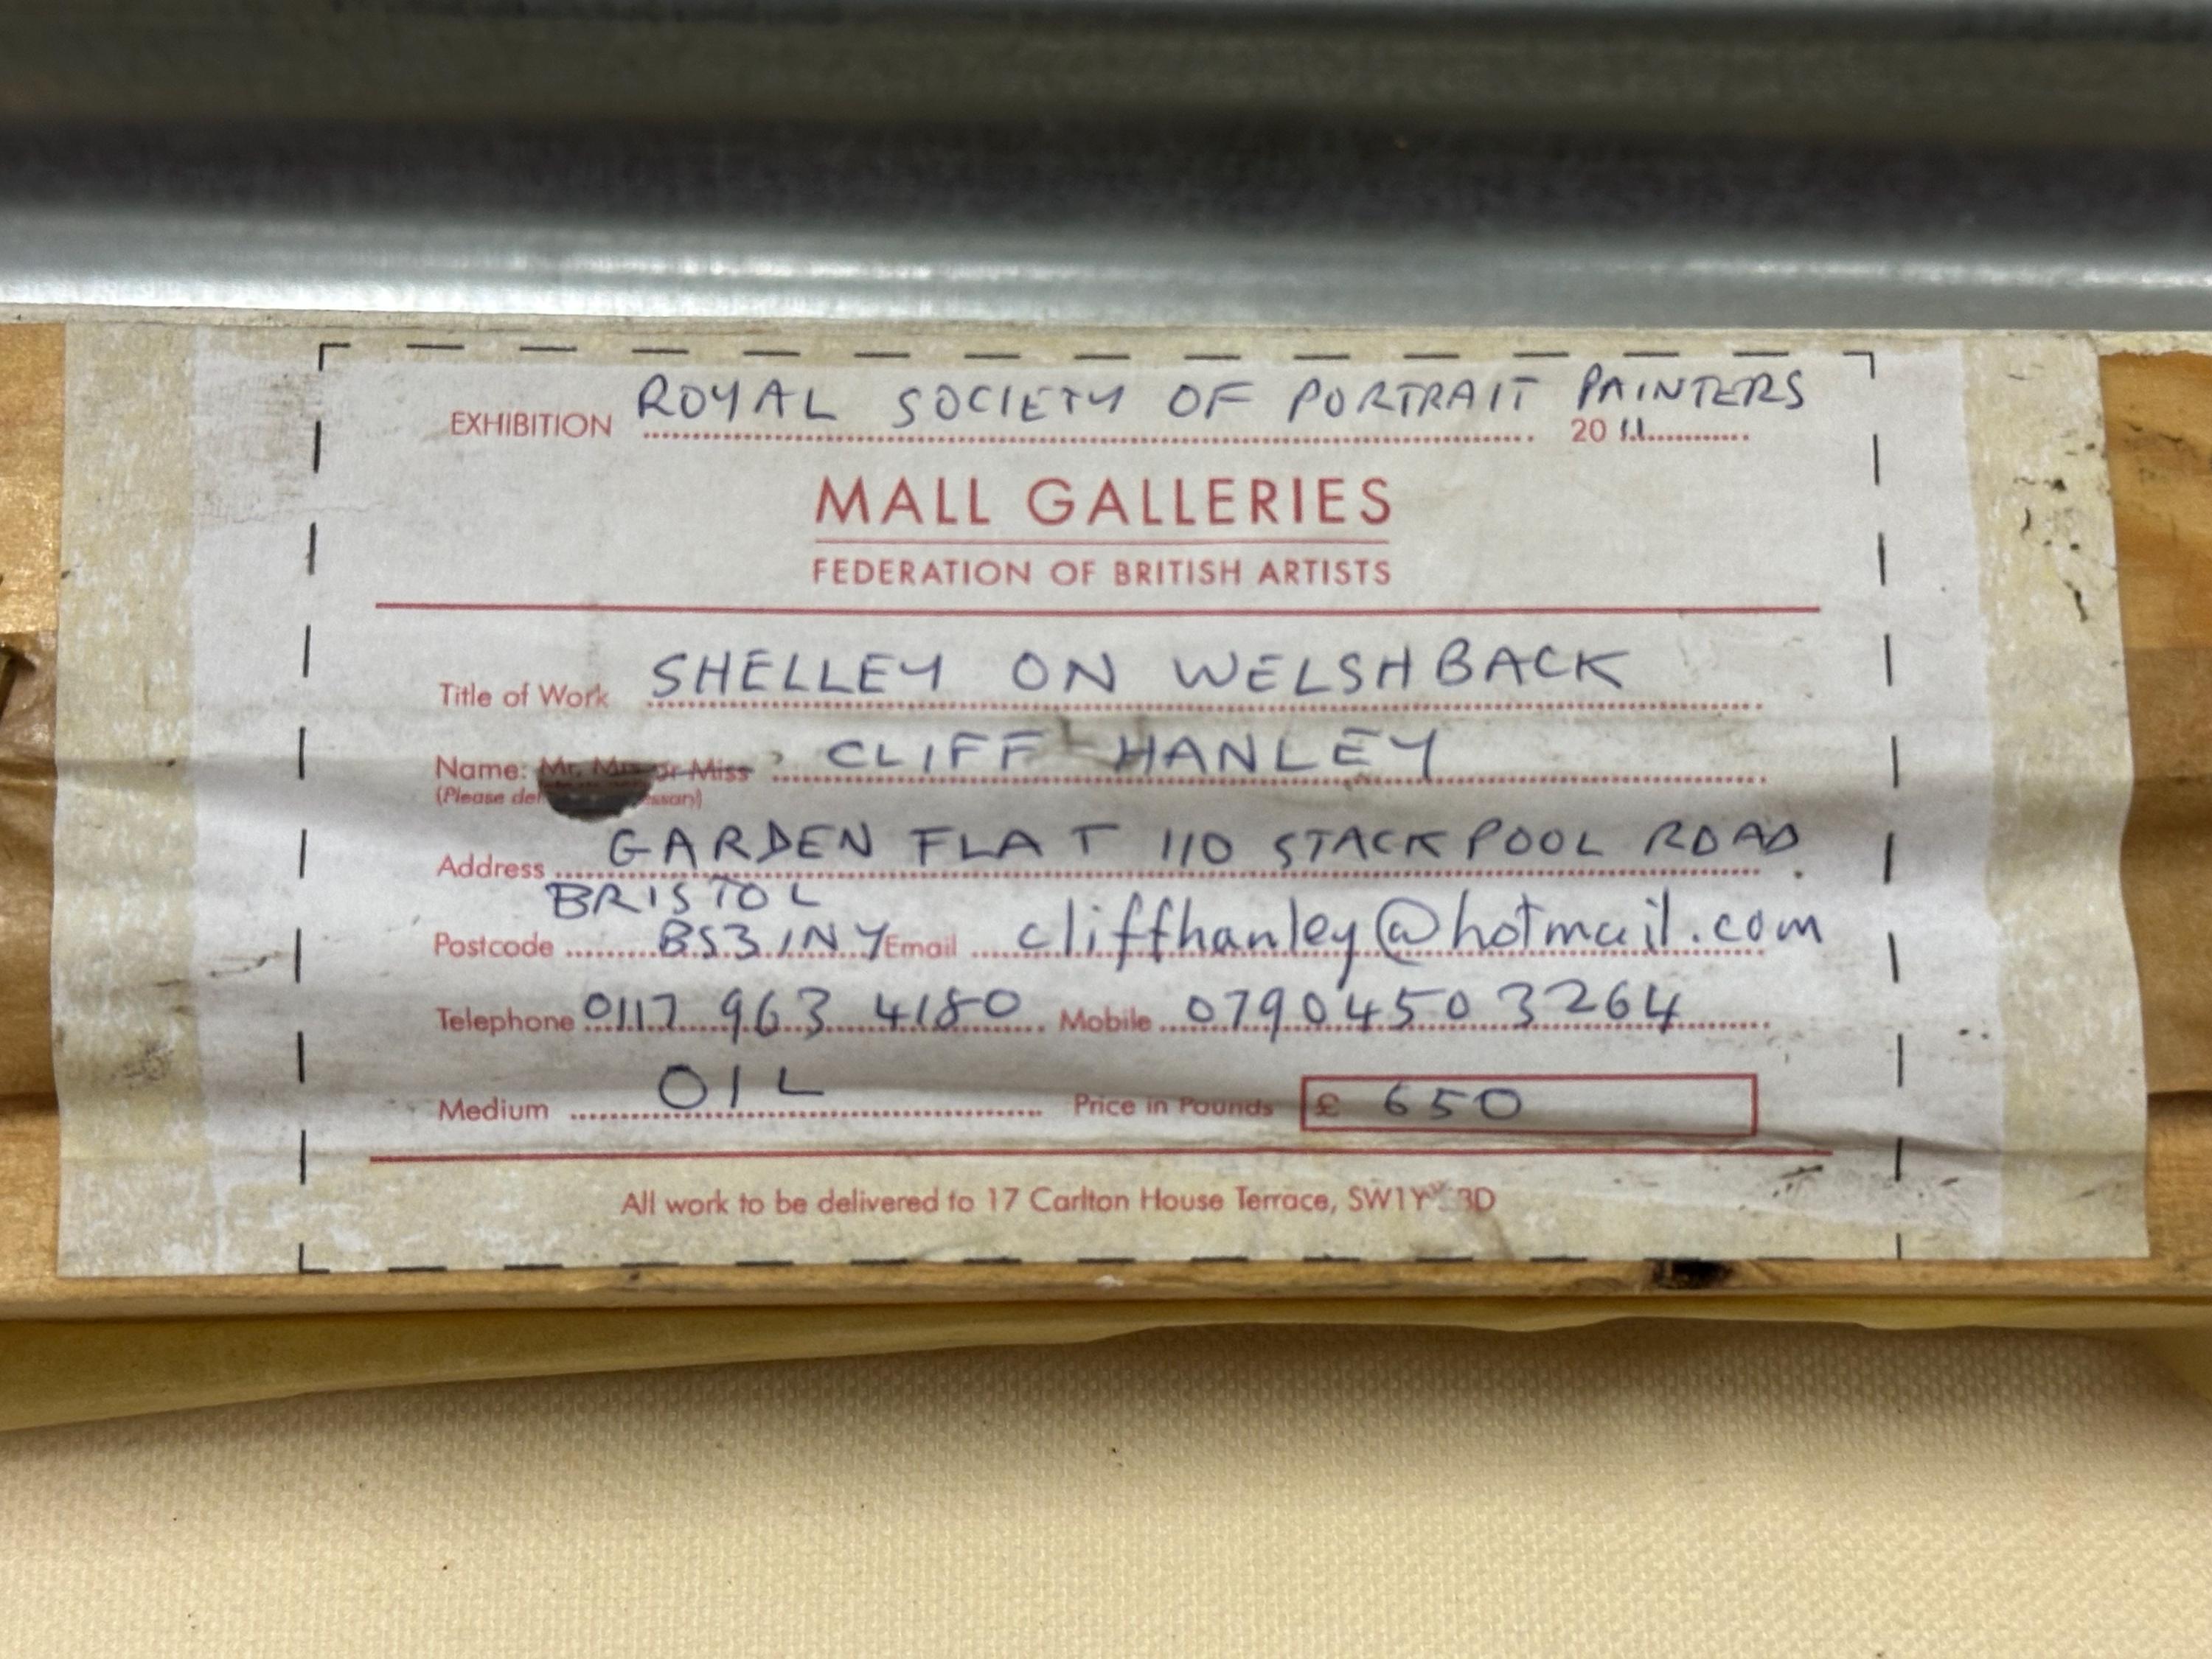 EXHIBITION ROYAL SOCIETY OF PORTRAIT PAINTERS 2011
MALL GALLERIES
FEDERATION OF BRITISH ARTISTS
Title of Work SHELLEY ON WELSH BACK
Name: Mr. or Miss CLIFF HANLEY
(Please
Address GARDEN FLAT 110 STACKPOOL ROAD.
BRISTOL
Postcode BS3 1NY Email cliffhanley@hotmail.com
Telephone 0117 963 4180 Mobile 0790450 3264
Medium OIL Price in Pounds £ 650
All work to be delivered to 17 Carlton House Terrace,